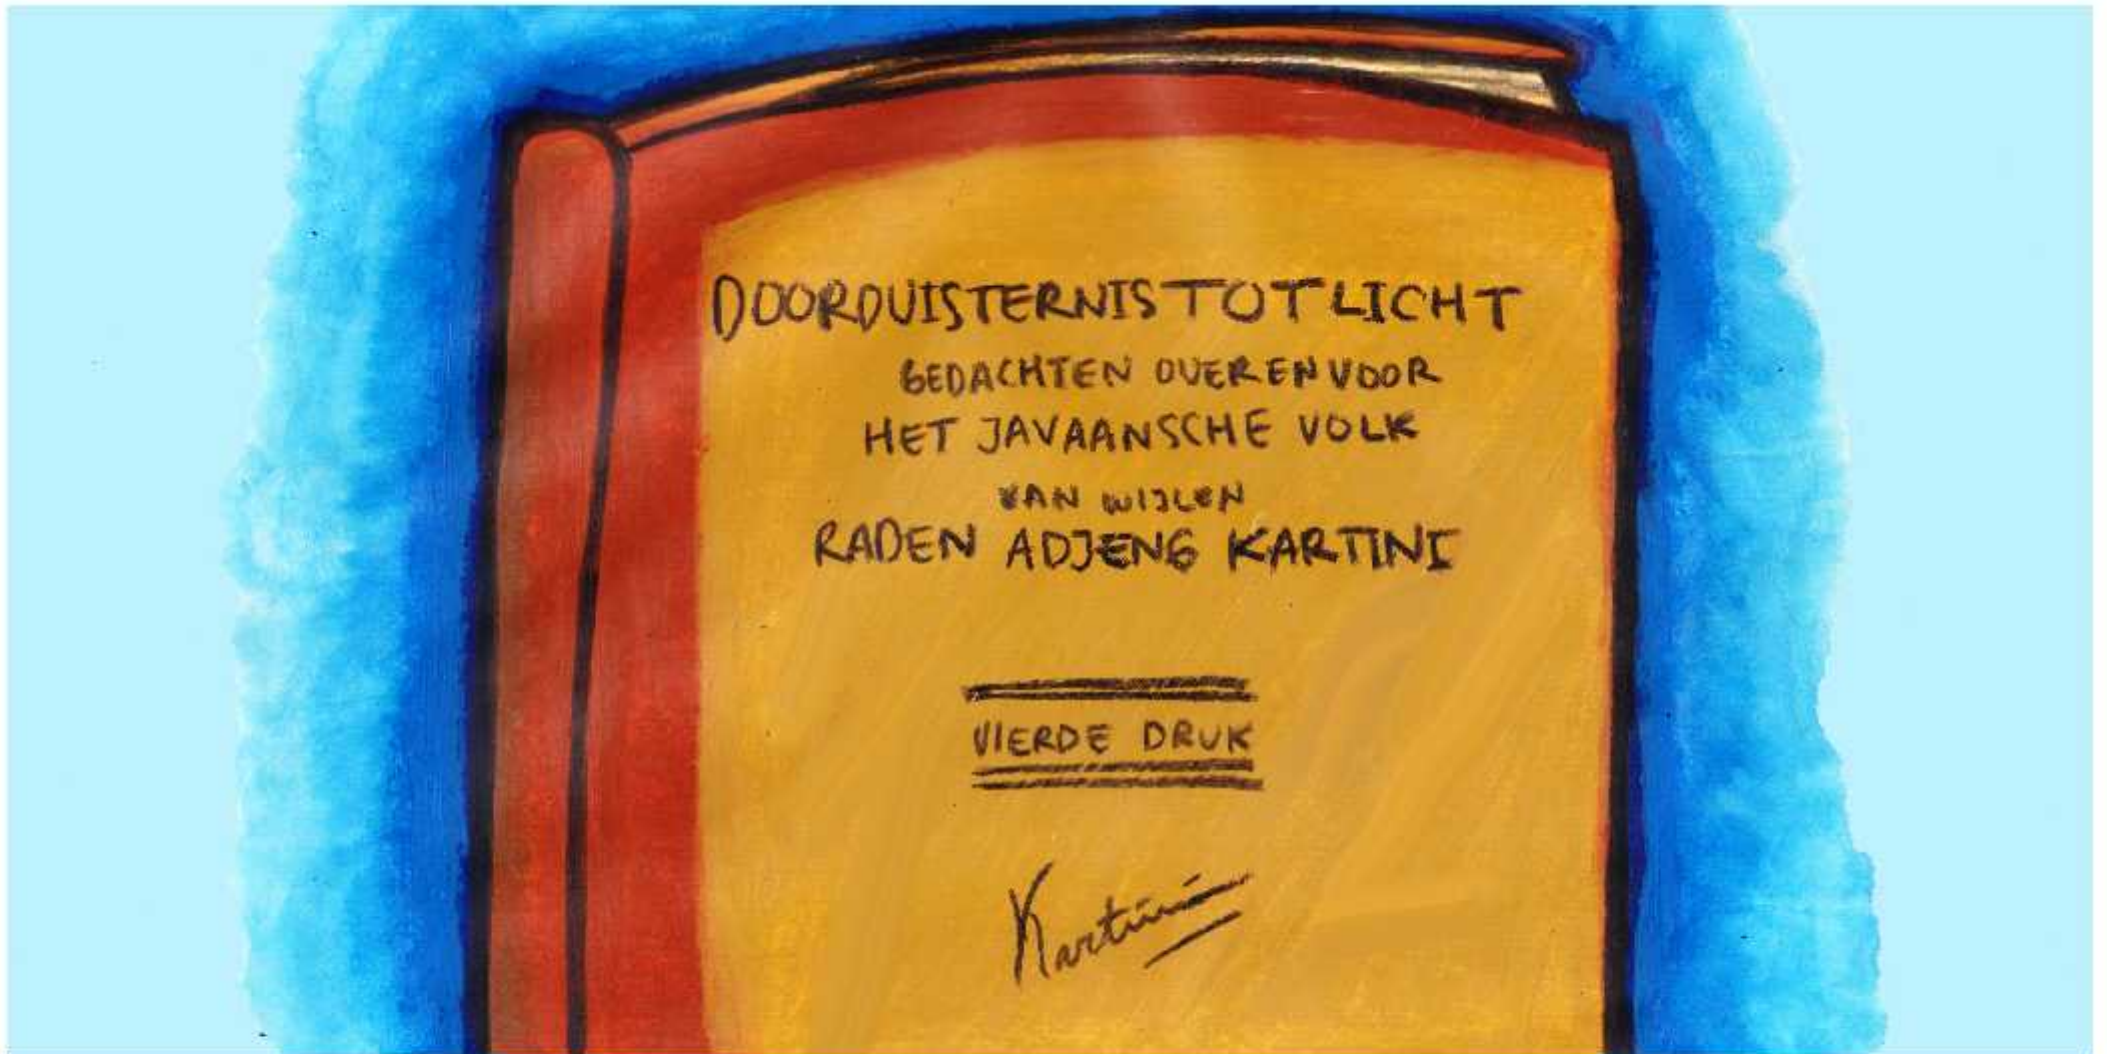 DOOR DUISTERNIS TOT LICHT
GEDACHTEN OVER EN VOOR
HET JAVAANSCHE VOLK
VAN WIJLEN
RADEN ADJENG KARTINI
VIERDE DRUK
Kartini